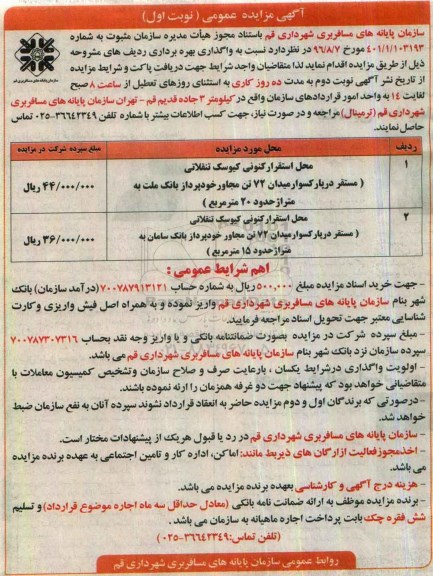 آگهی مزایده عمومی ( نوبت اول )
سازمان پایانه های مسافربری شهرداری قم باستناد مجوز هیأت مدیره سازمان مثبوت به شماره
۴۰۱/۱/۱۰۳۱۹۳ مورخ ۹۶/۸/۷ در نظردارد نسبت به واگذاری بهره برداری ردیف های مشروحه
ذیل از طریق مزایده اقدام نماید لذا متقاضیان واجد شرایط جهت دریافت پاکت و شرایط مزایده
از تاریخ نشر آگهی نوبت دوم به مدت ده روز کاری به استثنای روزهای تعطیل از ساعت ۸ صبح
لغایت ۱۴ به واحد امور قراردادهای سازمان واقع در کیلومتر ۳ جاده قدیم قم - تهران سازمان پایانه های مسافربری
شهرداری قم (ترمینال) مراجعه و در صورت نیاز، جهت کسب اطلاعات بیشتر با شماره تلفن ۳۶۶۴۲۳۴۹-۰۲۵ تماس
حاصل نمایند.
سازمان پایانه های مسافربری قم
ردیف محل مورد مزایده مبلغ سپرده شرکت در مزایده
۱ محل استقرار کنونی کیوسک تنقلاتی
( مستقر در پارکسوار میدان ۷۲ تن مجاور خودپرداز بانک ملت به
متراژ حدود ۲۰ مترمربع ) ۴۴/۰۰۰/۰۰۰ ریال
۲ محل استقرار کنونی کیوسک تنقلاتی
( مستقر در پارکسوار میدان ۷۲ تن مجاور خودپرداز بانک سامان به
متراژ حدود ۱۵ مترمربع ) ۳۶/۰۰۰/۰۰۰ ریال
اهم شرایط عمومی :
- جهت خرید اسناد مزایده مبلغ ۵۰۰,۰۰۰ ریال به شماره حساب ۷۰۰۷۸۷۹۱۳۱۲۱ (درآمد سازمان) بانک
شهر بنام سازمان پایانه های مسافربری شهرداری قم واریز نموده و به همراه اصل فیش واریزی و کارت
شناسایی معتبر جهت تحویل اسناد مزایده مراجعه فرمایید.
- مبلغ سپرده شرکت در مزایده بصورت ضمانتنامه بانکی و یا واریز وجه نقد بحساب ۷۰۰۷۸۷۳۰۷۳۱۶
سپرده سازمان نزد بانک شهر بنام سازمان پایانه های مسافربری شهرداری قم می باشد.
- اولویت واگذاری درشرایط یکسان ، بارعایت صرف و صلاح سازمان و تشخیص کمیسیون معاملات با
متقاضیانی خواهد بود که پیشنهاد جهت دو غرفه همزمان را ارئه نموده باشند.
- درصورتی که برندگان اول و دوم مزایده حاضر به انعقاد قرارداد نشوند سپرده آنان به نفع سازمان ضبط
خواهد شد.
- سازمان پایانه های مسافربری شهرداری قم در رد یا قبول هریک از پیشنهادات مختار است.
- اخذمجوز فعالیت از ارگان های ذیربط مانند: اماکن، اداره کار و تامین اجتماعی به عهده برنده مزایده
می باشد.
- هزینه درج آگهی و کارشناسی بعهده برنده مزایده می باشد.
- برنده مزایده موظف به ارائه ضمانت نامه بانکی (معادل حداقل سه ماه اجاره موضوع قرارداد) و تسلیم
شش فقره چک بابت پرداخت اجاره ماهیانه به سازمان می باشد .
(تلفن تماس: ۳۶۶۴۲۳۴۹-۰۲۵)
روابط عمومی سازمان پایانه های مسافربری شهرداری قم